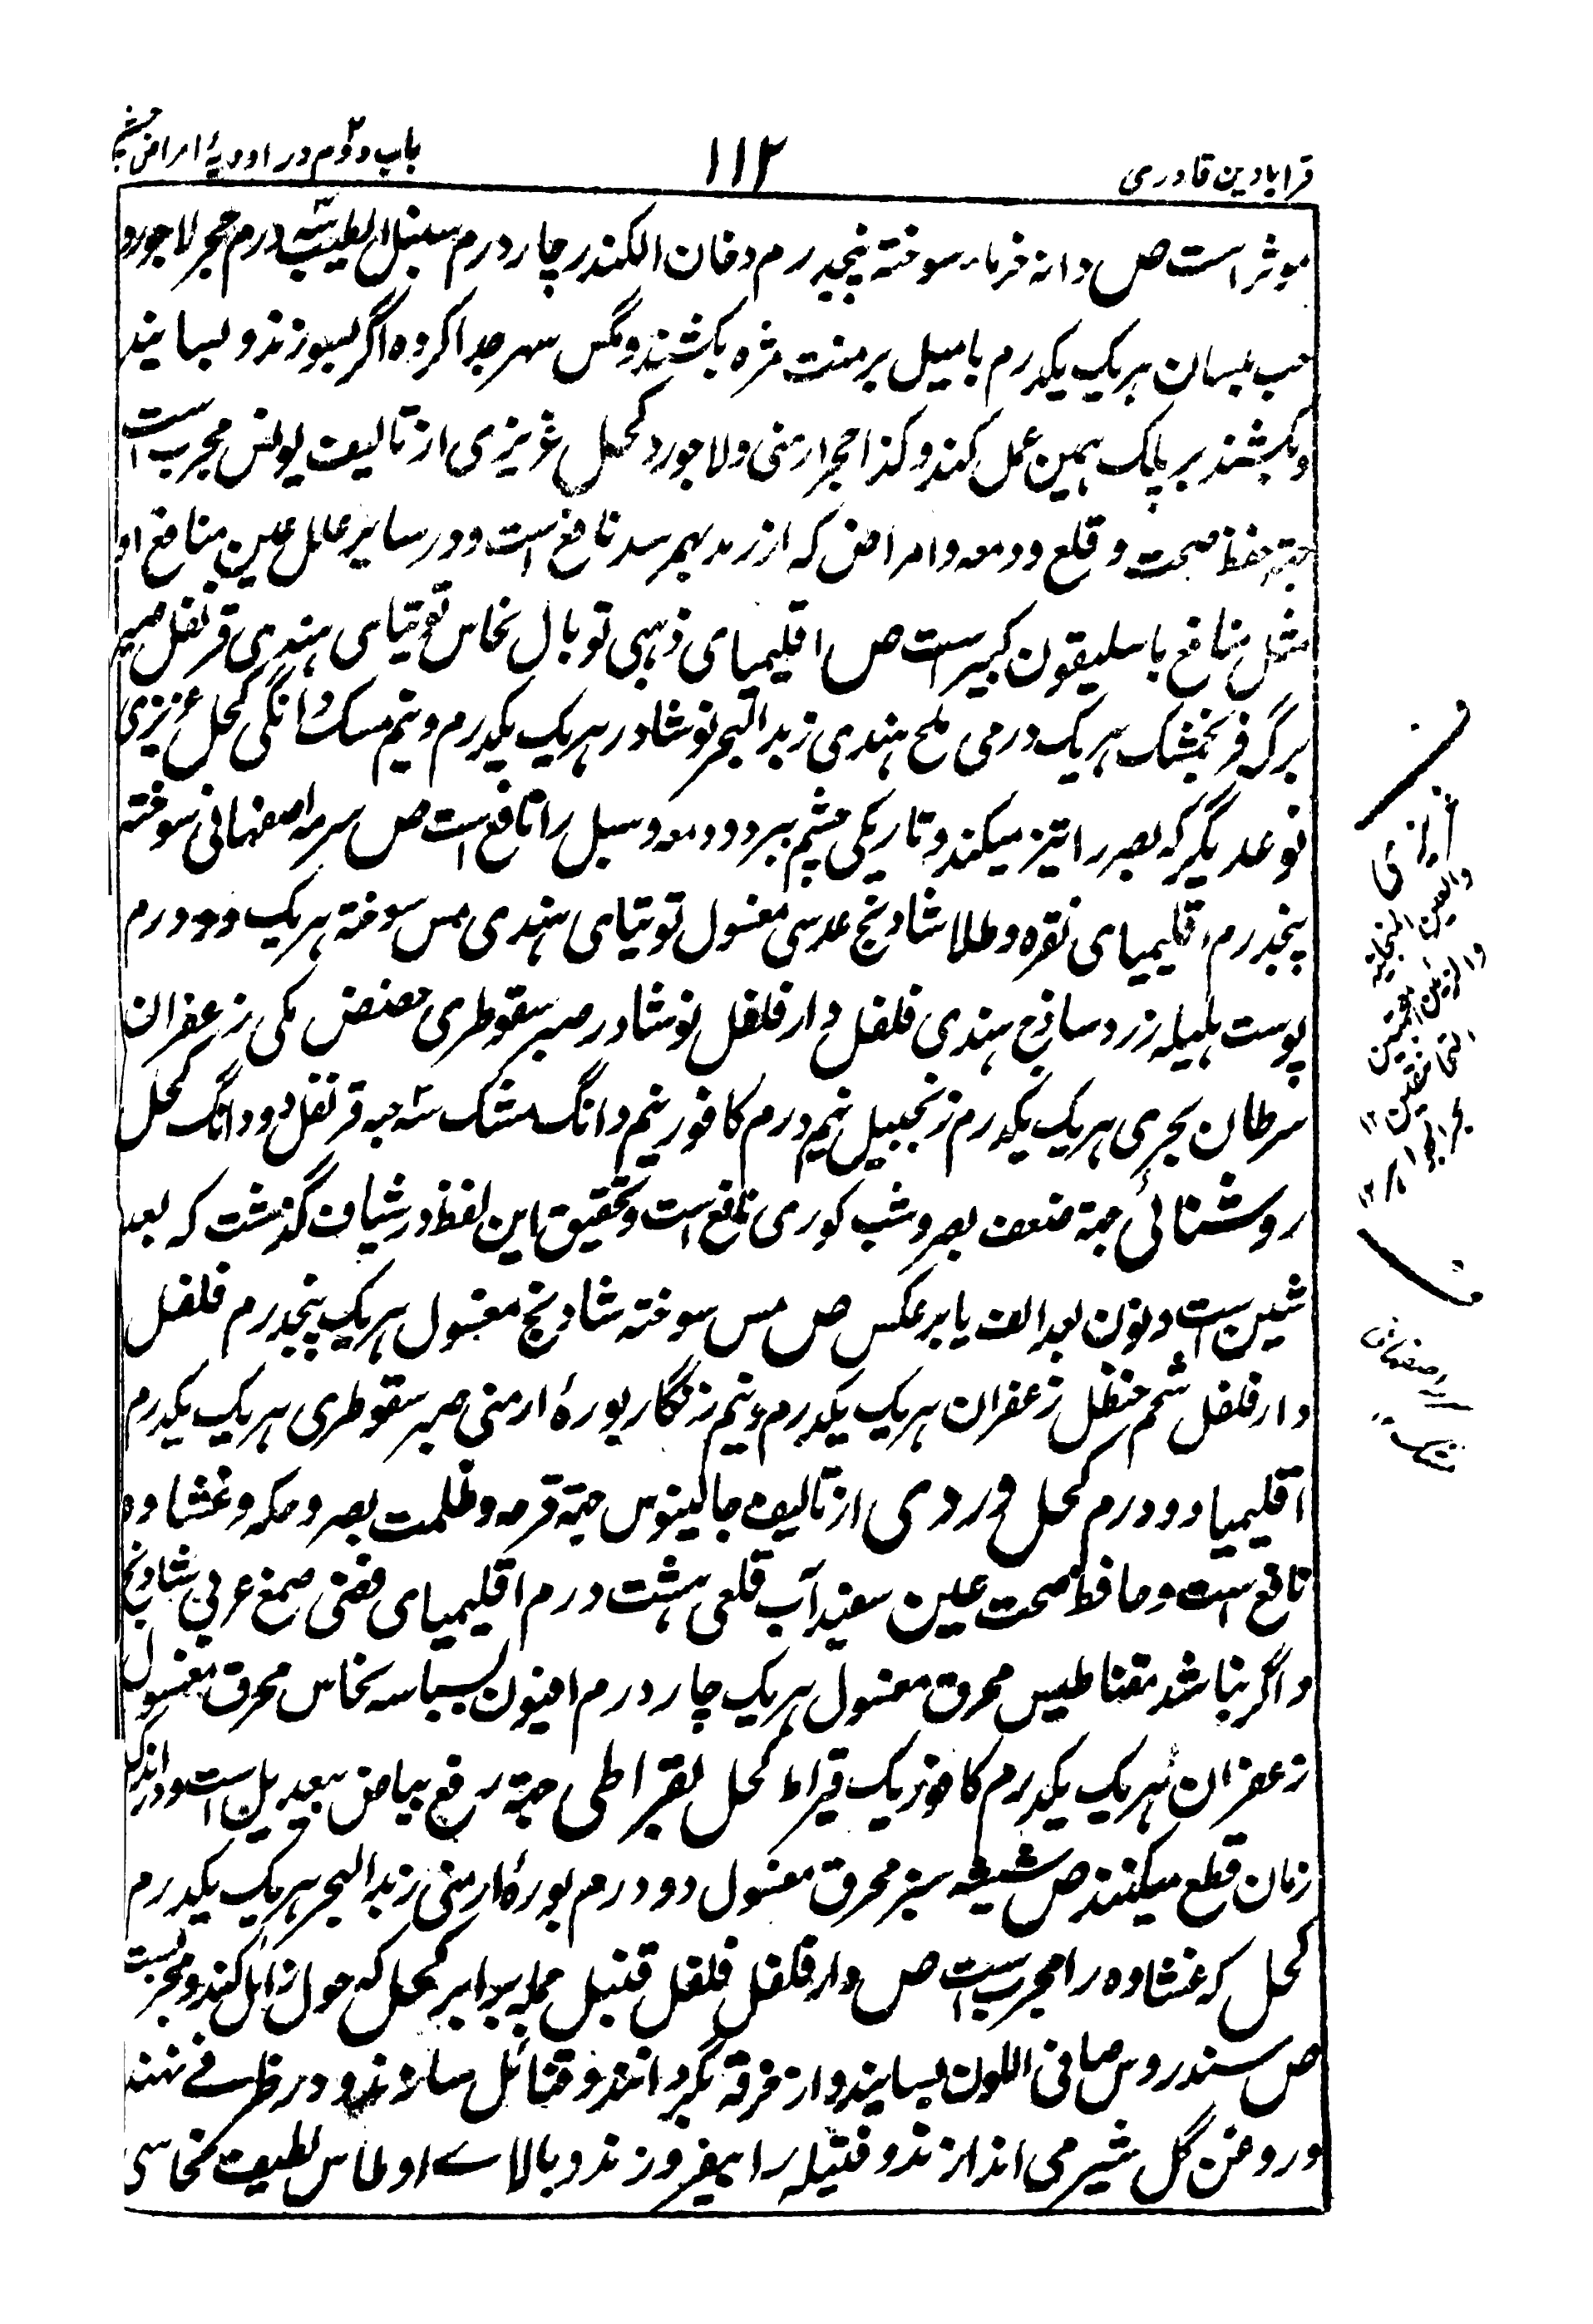 قرابادین قادری
۱۱۲
باب دوم در ادویهٔ امراض چشم
موثر است ص دانه خرما سوخته پنجدرم دخان الکندر چار درم سنبل الطیب سه درم حجر لاجورد
حب بلسان هریک یکدرم با میل بر منبت مژه بکشند و مگس سر جدا کرده اگر بسوزند و بسایند
و بکشند بر پلک همین عمل کند و کذا حجر ارمنی و لاجورد کحل عزیزی از تالیف یونس مجرب است
جهة حفظ صحت و قلع و دمعه و امراض که از رمد بهم رسد نافع است و در سایر علل عین منافع او
مثل منافع باسلیقون کبیر است ص اقلیمیای ذهبی توبال نحاس توتیای هندی قرنفل صبر
برگ فرنجمشک هریک درمی ملح هندی زبد البحر نوشادر هریک یکدرم و نیم مسک دانگی کحل عزیزی
نوعدیگر که بصر را تیز میکند و تاریکی چشم ببرد و دمعه و سبل را نافع است ص سرمه اصفهانی سوخته
پنجدرم اقلیمیای نقره و طلا شادنج عدسی مغسول توتیای هندی مس سوخته هریک دو درم
پوست هلیله زرد ساذج هندی فلفل دار فلفل نوشادر صبر سقوطری حضض مکی زعفران
سرطان بحری هریک یکدرم زنجبیل نیم درم کافور نیم دانگ مشک سه حبه قرنفل دو دانگ کحل
روشنائی جهة ضعف بصر و شب کوری نافع است و تحقیق این لفظ در شیاف گذشت که بعد
شین است و نون بعد الف یا برعکس ص مس سوخته شادنج مغسول هریک پنجدرم فلفل
دار فلفل شحم حنظل زعفران هریک یکدرم و نیم زنگار بورهٔ ارمنی صبر سقوطری هریک یکدرم
اقلیمیا دو درم کحل وردی از تالیف جالینوس جهة قرحه و ظلمت بصر و حکه و غشاوه
نافع است و حافظ صحت عین سفید آب قلعی هشت درم اقلیمیای فضی صمغ عربی شادنج
و اگر نباشد مقناطیس محرق مغسول هریک چار درم افیون بسباسه نحاس محرق مغسول
زعفران هریک یکدرم کافور یک قیراط کحل بقراطی جهة رفع بیاض بیعدیل است و در اندک
زمان قطع میکند ص شیشه سبز محرق مغسول دو درم بورهٔ ارمنی زبد البحر هریک یکدرم
کحل که غشاوه را مجرب است ص دار فلفل فلفل قنبیل جمله برابر کحل که حول زائل کند و مجرب است
ص سندروس صافی اللون بسایند و از خرقه بگردانند و فتائل سازند و در ظرفے نهند
و روغن گل شیر می اندازند و فتیله را بیفروزند و بالاے او طاس لطیف نحاسی